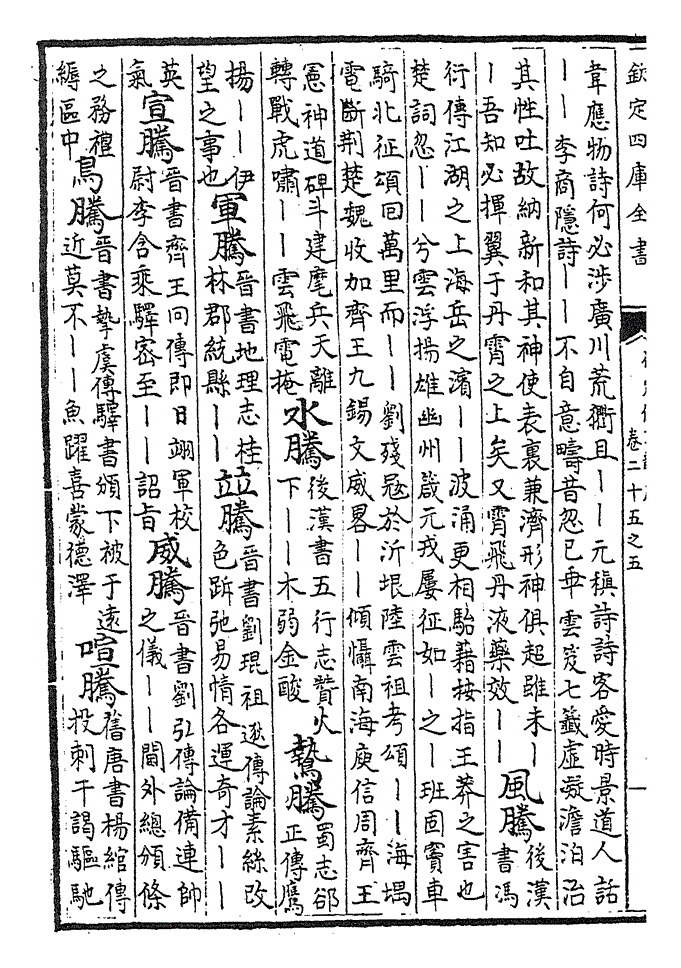 欽定四庫全書
卷二十五之五
韋應物詩何必涉廣川荒衢且丨丨元稹詩詩客愛時景道人話
丨丨李商隱詩丨丨不自意疇昔忽已乖 雲笈七籤虛凝澹泊治
其性吐故納新和其神使表裏兼濟形神俱超雖未丨
丨吾知必揮翼于丹霄之上矣又霄飛丹液藥效丨丨
風騰
後漢
書馮
衍傳江湖之上海岳之濱丨丨波涌更相駘藉按指王莽之害也
楚詞忽丨丨兮雲浮揚雄幽州箴元戎屢征如丨之丨班固竇車
騎北征頌回萬里而丨丨劉殘寇於沂垠陸雲祖考頌丨丨海堨
電斷荊楚魏收加齊王九錫文威畧丨丨傾懾南海庾信周齊王
憲神道碑斗建麾兵天離
轉戰虎嘯丨丨雲飛電掩
水騰
後漢書五行志贊火
下丨丨木弱金酸
鷙騰
蜀志郤
正傳鷹
揚丨丨伊
望之事也
軍騰
晉書地理志桂
林郡統縣丨丨
竝騰
晉書劉琨祖逖傳論素絲改
色跅弛易情各運奇才丨丨
英
氣
宣騰
晉書齊王冏傳即日翊軍校
尉李含乘驛密至丨丨詔旨
威騰
晉書劉弘傳論備連帥
之儀丨丨閫外總頒條
之務禋
縟區中
鳥騰
晉書摯虞傳驛書頒下被于遠
近莫不丨丨魚躍喜蒙德澤
喧騰
舊唐書楊綰傳
投刺干謁驅馳